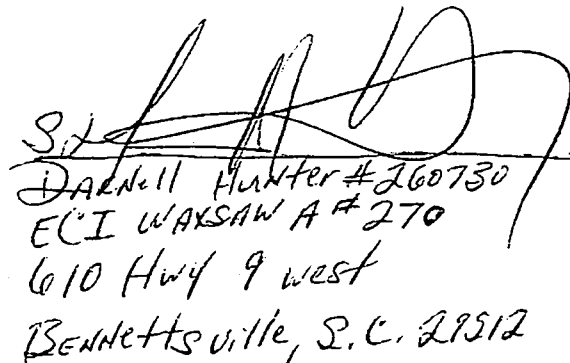 S/
DARNell HuNter # 260730
ECI WAXSAW A # 270
610 Hwy 9 west
BENNettsville, S.C. 29512